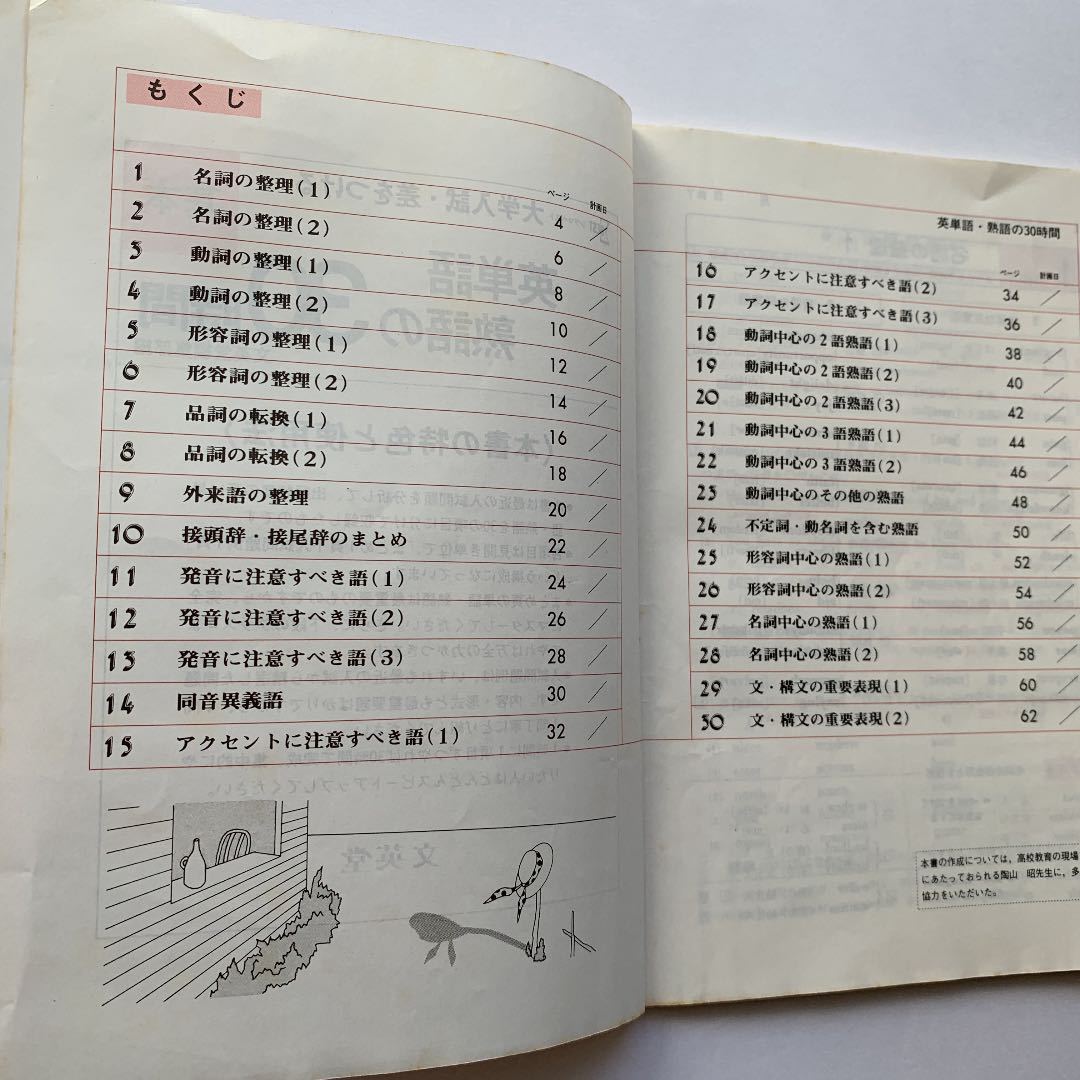 もくじ
ページ 計画日
1 名詞の整理(1) 4 ／
2 名詞の整理(2) 6 ／
3 動詞の整理(1) 8 ／
4 動詞の整理(2) 10 ／
5 形容詞の整理(1) 12 ／
6 形容詞の整理(2) 14 ／
7 品詞の転換(1) 16 ／
8 品詞の転換(2) 18 ／
9 外来語の整理 20 ／
10 接頭辞・接尾辞のまとめ 22 ／
11 発音に注意すべき語(1) 24 ／
12 発音に注意すべき語(2) 26 ／
13 発音に注意すべき語(3) 28 ／
14 同音異義語 30 ／
15 アクセントに注意すべき語(1) 32 ／
英単語・熟語の30時間
ページ 計画日
16 アクセントに注意すべき語(2) 34 ／
17 アクセントに注意すべき語(3) 36 ／
18 動詞中心の2語熟語(1) 38 ／
19 動詞中心の2語熟語(2) 40 ／
20 動詞中心の2語熟語(3) 42 ／
21 動詞中心の3語熟語(1) 44 ／
22 動詞中心の3語熟語(2) 46 ／
23 動詞中心のその他の熟語 48 ／
24 不定詞・動名詞を含む熟語 50 ／
25 形容詞中心の熟語(1) 52 ／
26 形容詞中心の熟語(2) 54 ／
27 名詞中心の熟語(1) 56 ／
28 名詞中心の熟語(2) 58 ／
29 文・構文の重要表現(1) 60 ／
30 文・構文の重要表現(2) 62 ／
本書の作成については、高校教育の現場
にあたっておられる陶山 昭先生に、多
協力をいただいた。